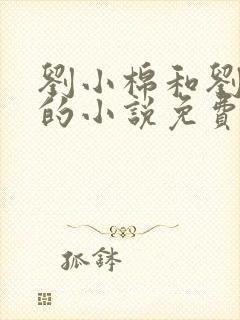 劉小棉和劉
的小說免費
狐鉢